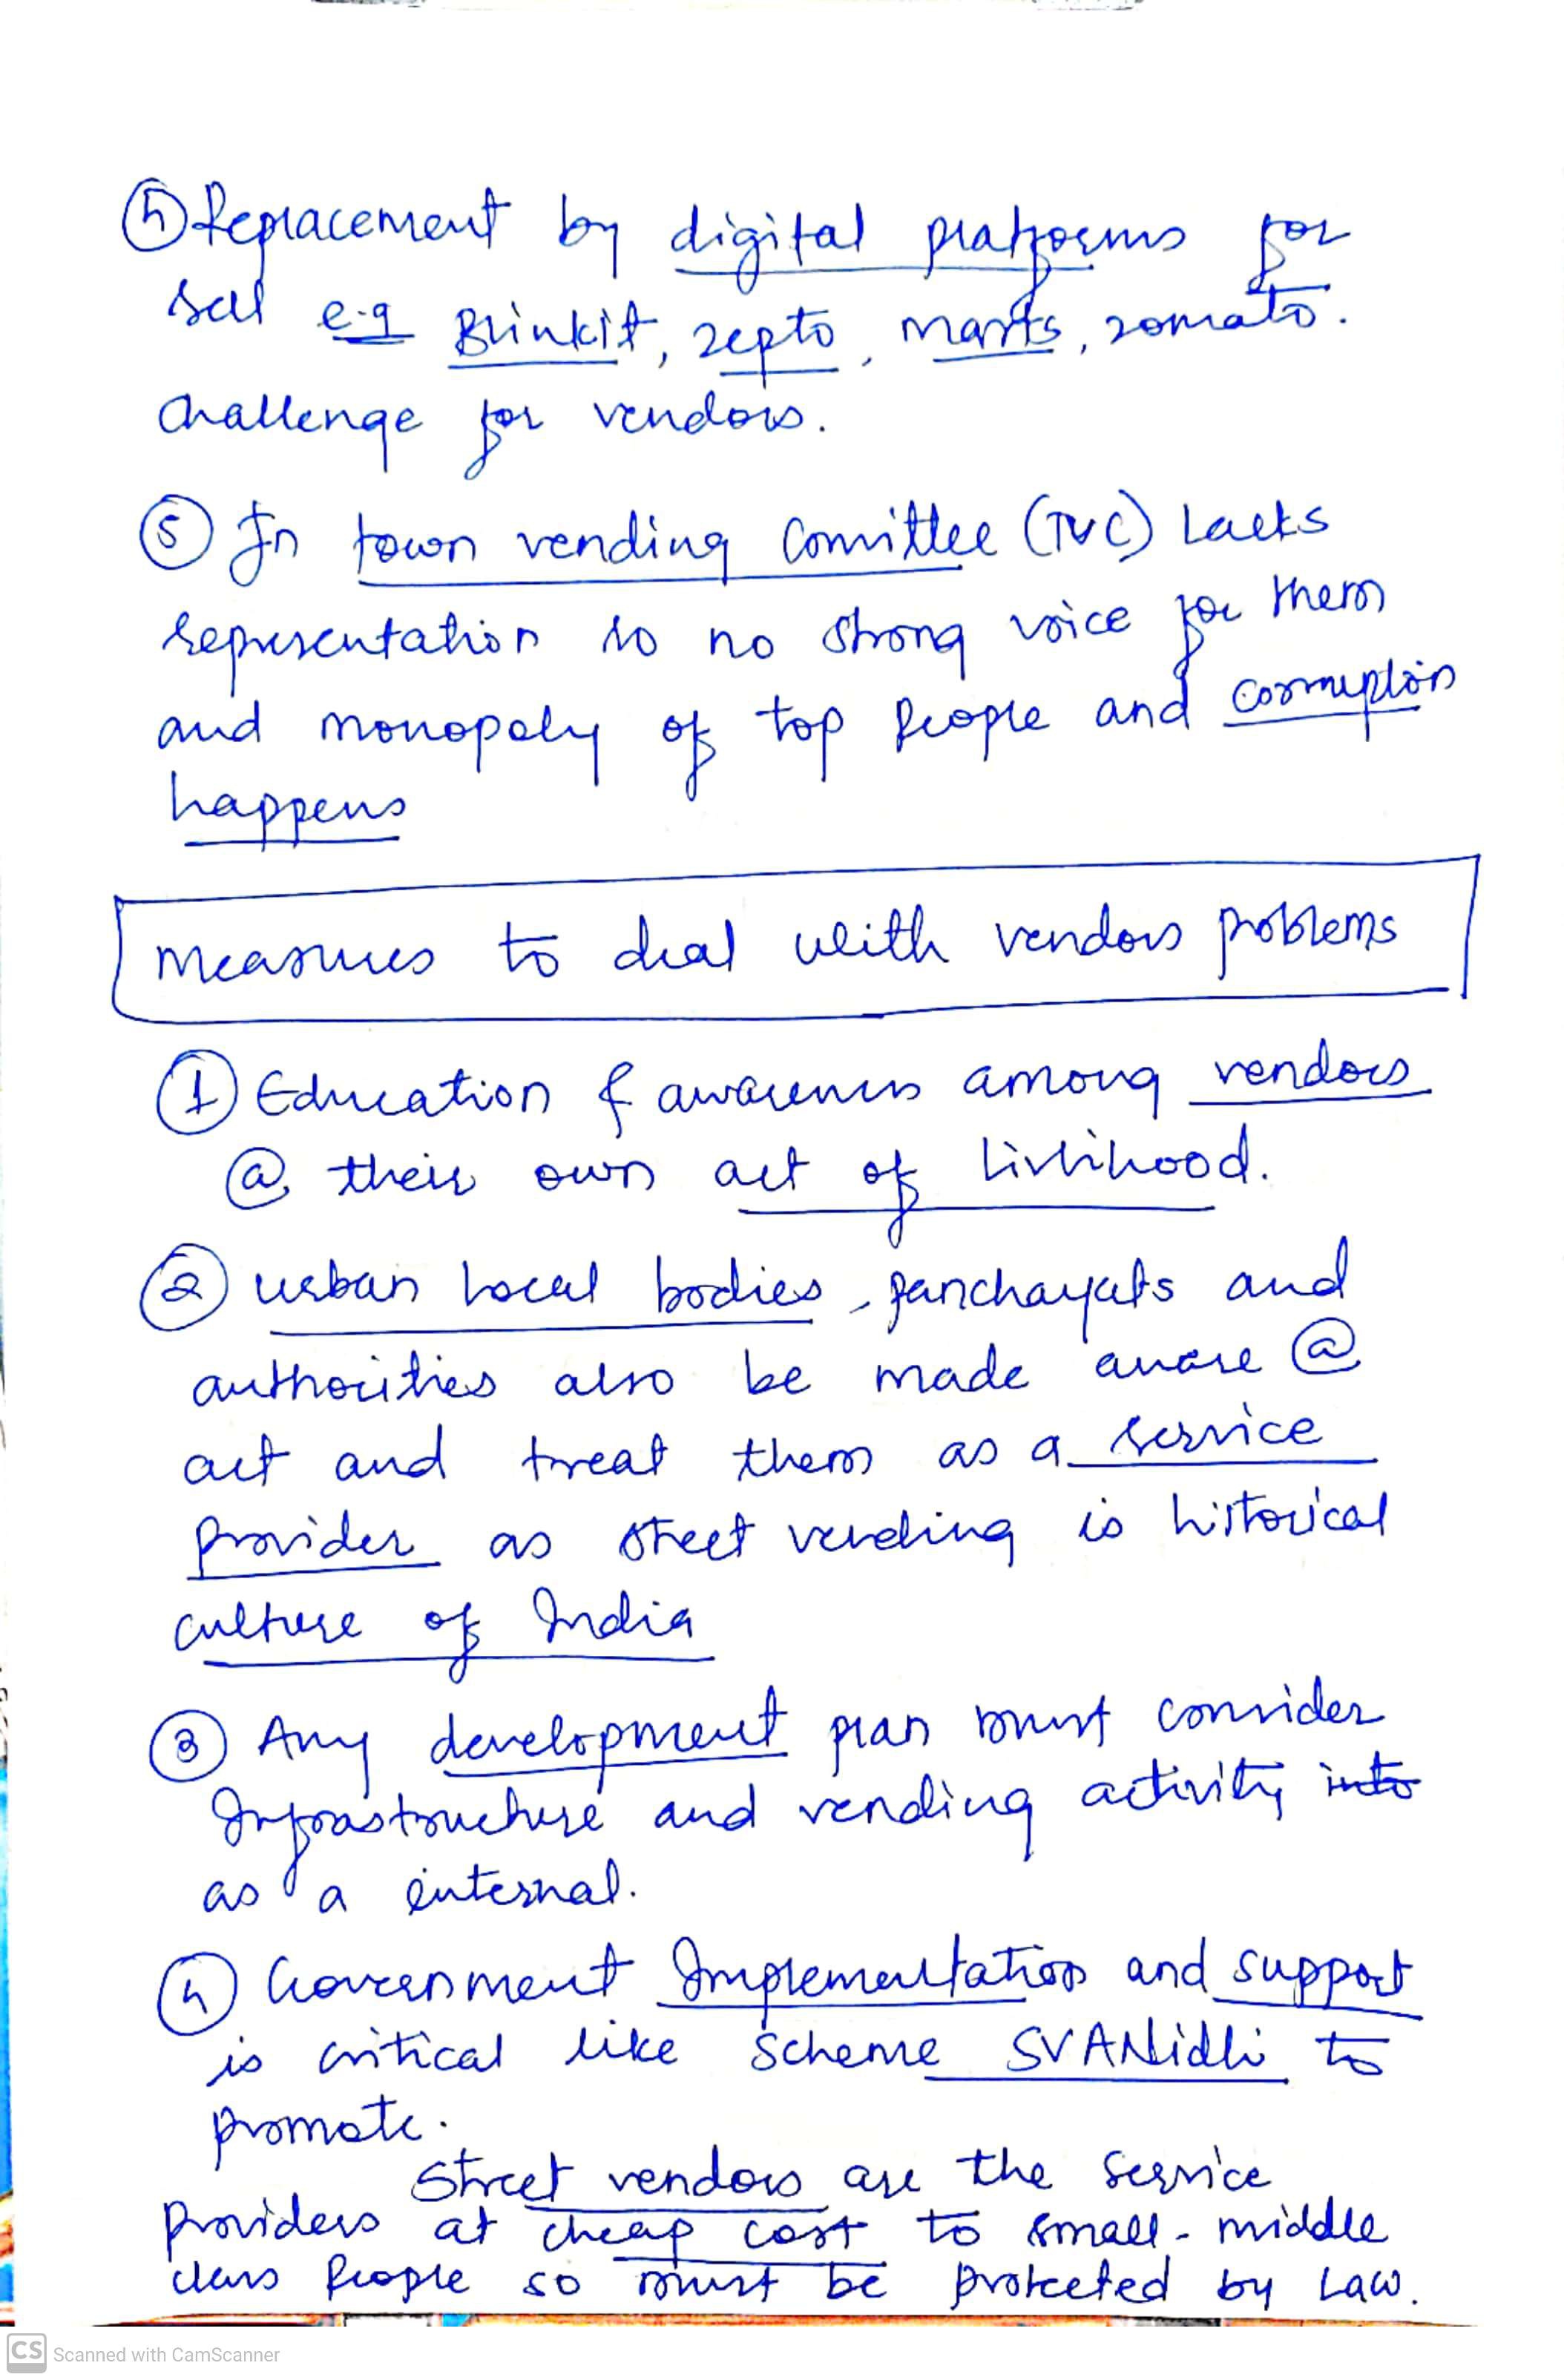 ④ Replacement by digital platforms for
sell e.g Blinkit, zepto, marts, zomato.
Challenge for vendors.
⑤ In town vending Comittee (TVC) Lacks
representation so no strong voice for them
and monopoly of top people and corruption
happens
Measures to deal with vendors problems
① Education & awareness among vendors
@ their own act of livlihood.
② urban local bodies, panchayats and
authorities also be made aware @
act and treat them as a service
provider as street vending is historical
culture of India
③ Any development plan must consider
Infrastructure and vending activity into
as a internal.
④ Government Implementation and support
is critical like scheme SVANidhi to
promote.
Street vendors are the service
providers at cheap cost to small-middle
class people so must be protected by Law.
CS Scanned with CamScanner